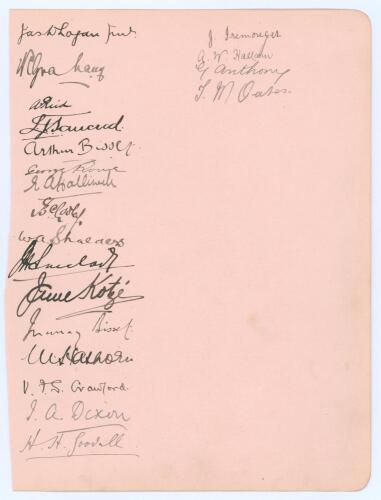 Jas D Logan Junr.
A Reid
L J Tancred.
Arthur Bisset.
George Rowe
E A Halliwell
B C Cooley
W A Shalders
J H Sinclair
Kotzé
Murray Bisset
Hathorn
V. F. S. Crawford.
J. A. Dixon
H. H. Goodall.
J. Iremonger
G. W. Hallam
G Anthony
T. M Oates.